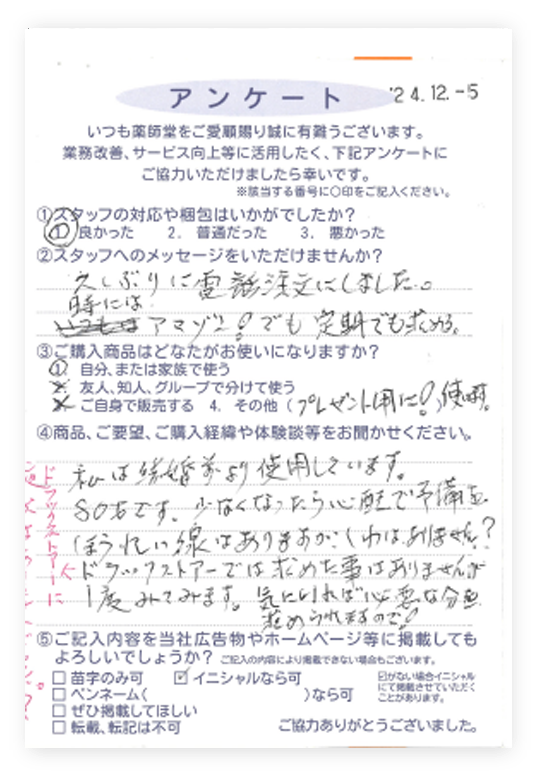 '24.12.-5
アンケート
いつも薬師堂をご愛顧賜り誠に有難うございます。
業務改善、サービス向上等に活用したく、下記アンケートに
ご協力いただけましたら幸いです。
※該当する番号に○印をご記入ください。
①スタッフの対応や梱包はいかがでしたか？
1. 良かった 2. 普通だった 3. 悪かった
②スタッフへのメッセージをいただけませんか？
久しぶりに電話注文にしました。
時には
アマゾン!でも定期でも求める。
③ご購入商品はどなたがお使いになりますか？
1. 自分、または家族で使う
2. 友人、知人、グループで分けて使う
3. ご自身で販売する 4. その他（プレゼント用に!）使用。
④商品、ご要望、ご購入経緯や体験談等をお聞かせください。
私は結婚前より使用しています。
80才です。少なくなったら心配で予備を
ほうれい線はありますが、しわはありません?
ドラックストアーでは求めた事はありませんが
1度みてみます。気にいれば必要な分
求められますので!
ドラックストアーに
⑤ご記入内容を当社広告物やホームページ等に掲載しても
よろしいでしょうか？ ご記入の内容により掲載できない場合もございます。
□ 苗字のみ可 ☑ イニシャルなら可
□ ペンネーム( )なら可
□ ぜひ掲載してほしい
□ 転載、転記は不可
☑がない場合イニシャル
にて掲載させていただく
ことがあります。
ご協力ありがとうございました。